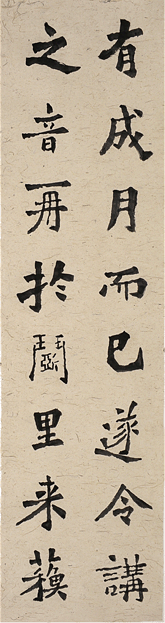 有成月而已遂令講
之音再於鬭里来蘓